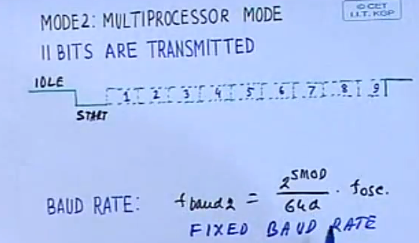 MODE2: MULTIPROCESSOR MODE
© CET
I.I.T. KGP
11 BITS ARE TRANSMITTED
IDLE
1 2 3 4 5 6 7 8 9
START
BAUD RATE: f baud2 = 2^SMOD / 64d . fosc.
FIXED BAUD RATE